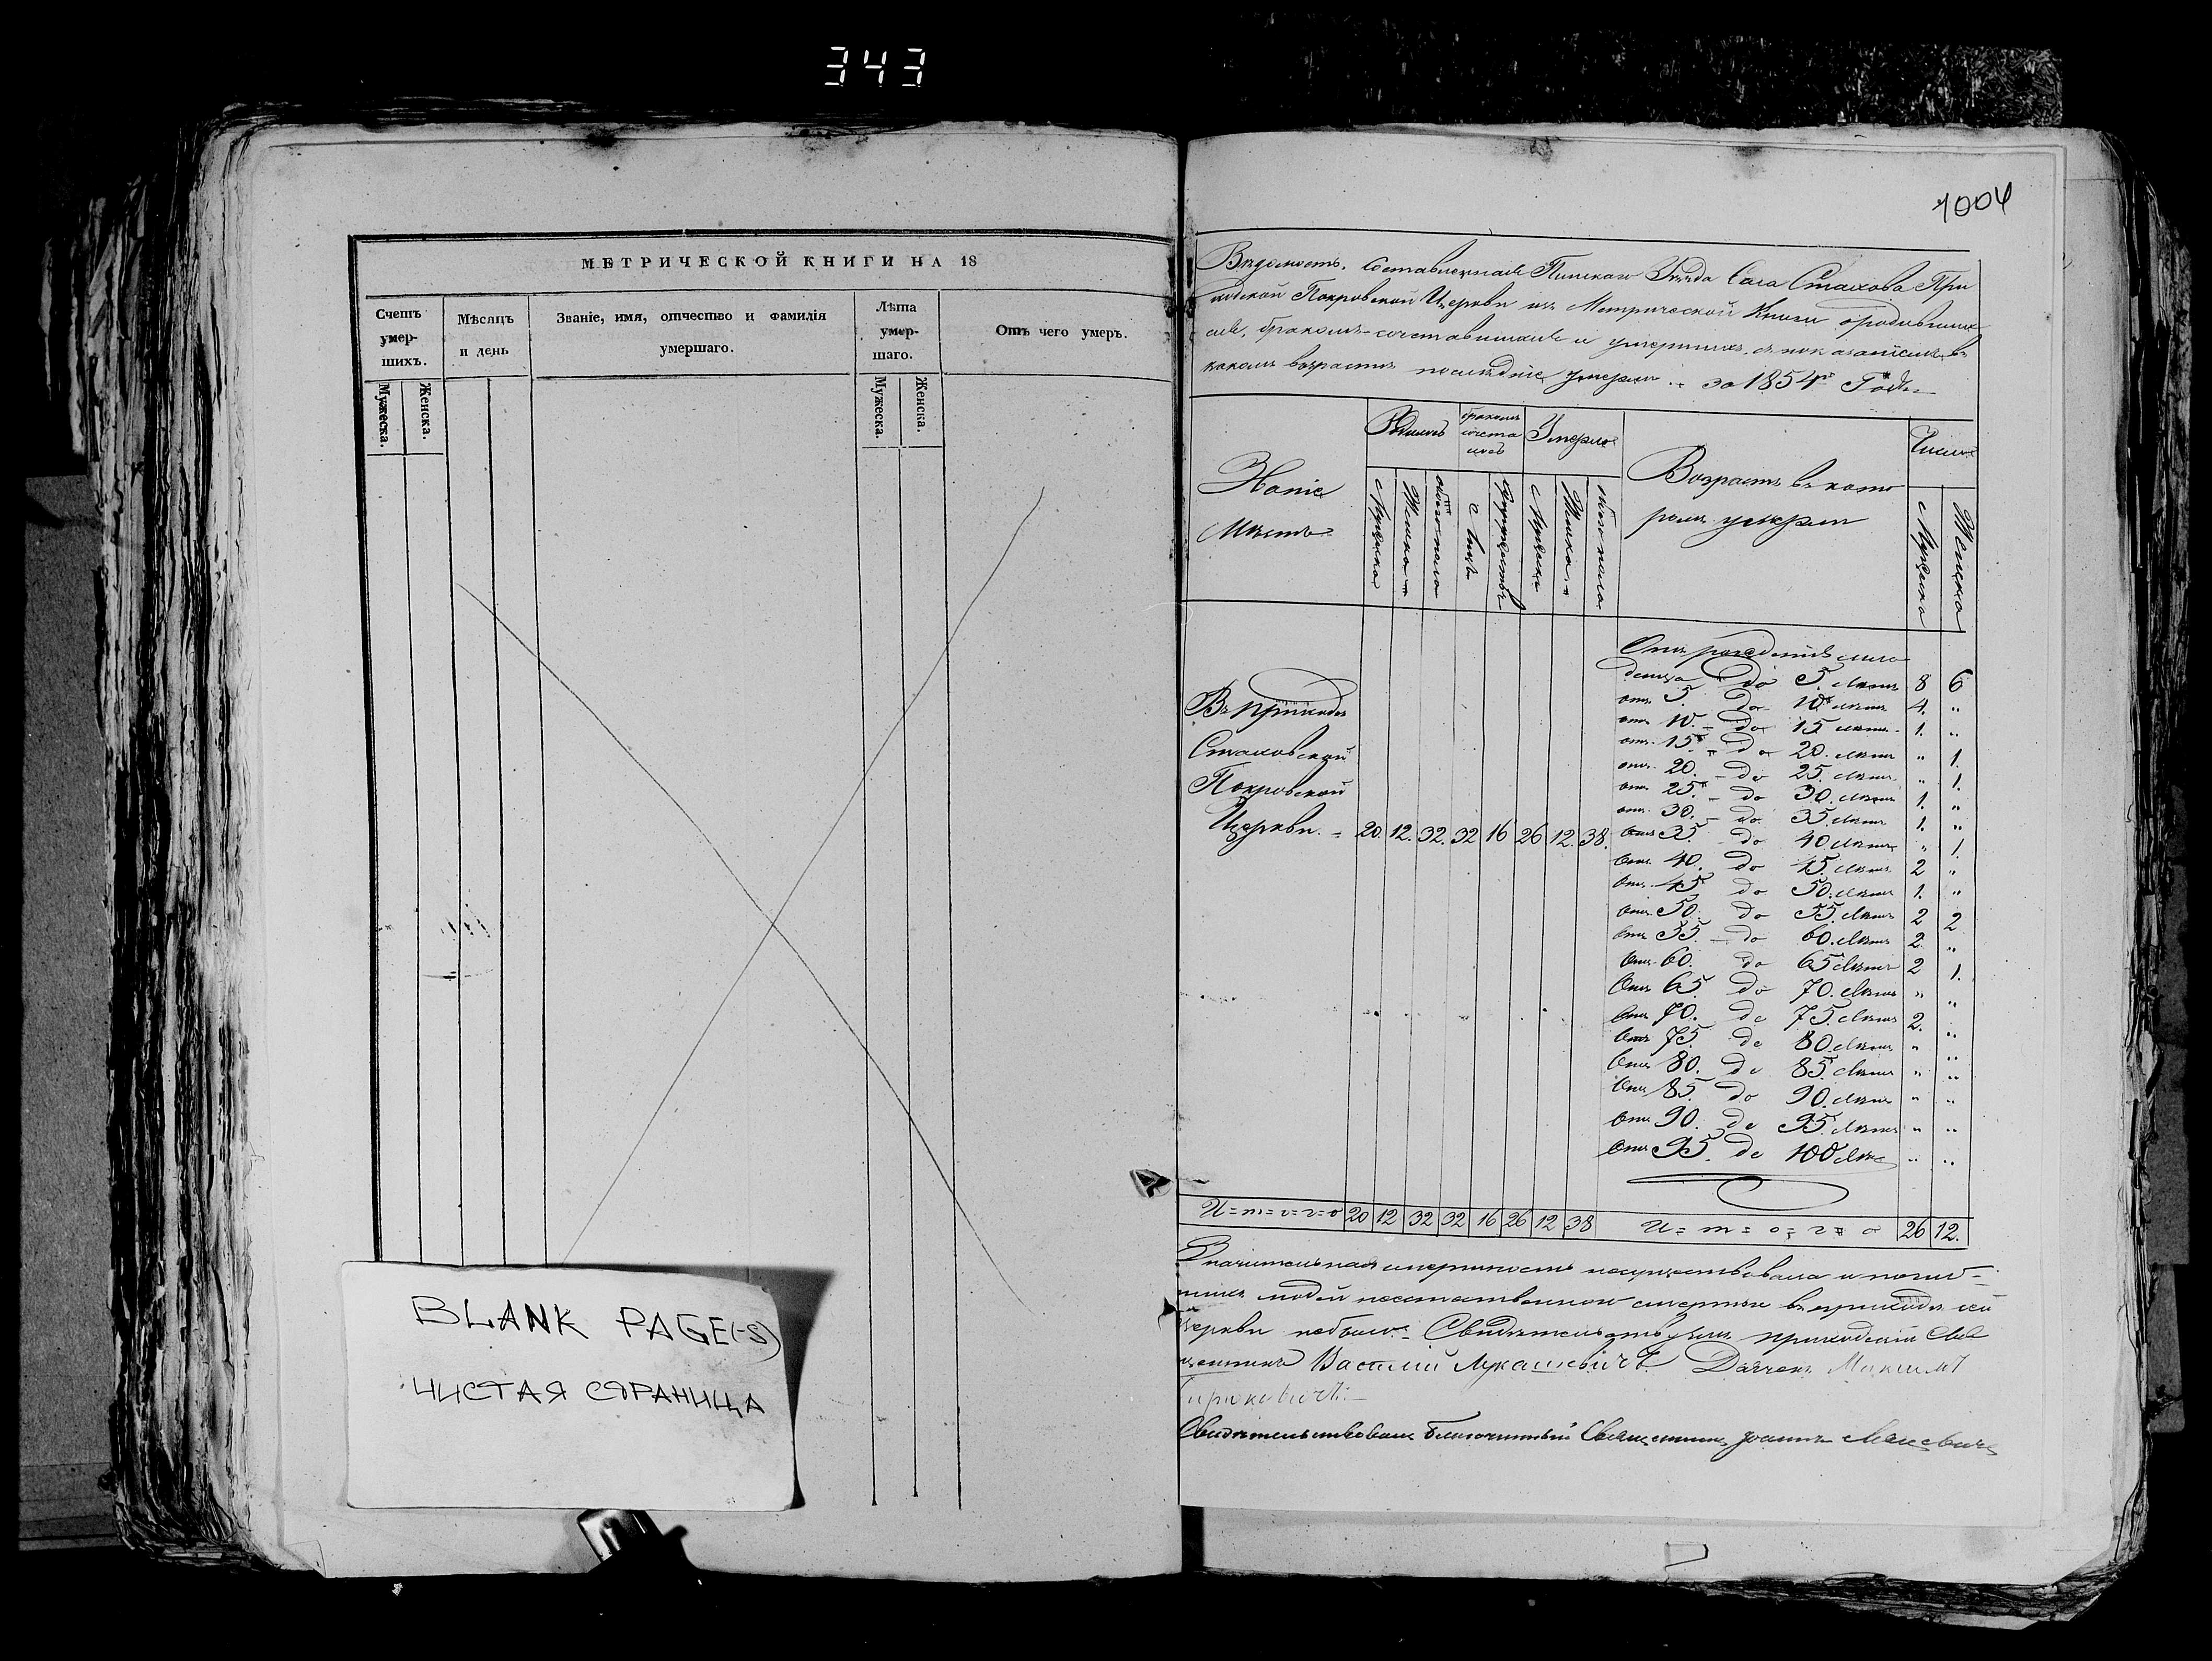 343
МЕТРИЧЕСКОЙ КНИГИ НА 18
Счетъ умер-шихъ.
Мѣсяцъ и день
Званіе, имя, отчество и фамилія умершаго.
Лѣта умер-шаго.
Отъ чего умеръ.
Мужеска.
Женска.
Мужеска.
Женска.
BLANK PAGE(-S)
ЧИСТАЯ СТРАНИЦА
1004
Вѣдомость, составленная Пинскаго Уѣзда Села Стахова При
ходской Покровской Церкви изъ Метрической Книги о родивших
ся, бракомъ сочетавшихся и умершихъ, съ показаніемъ въ
какомъ возрастѣ послѣдніе умерли за 1854й Годъ
Званіе Мѣстъ
Родилось
бракомъ сочета лось
Умерло
Возрастъ въ кото ромъ умерли
Число
Мужеска
Женска
обоего пола
Лицъ
Супружествъ
Мужеска
Женска
обоего пола
Мужеска
Женска
Отъ рожденія мла
денца до 5. лѣтъ 8 6
отъ 5. до 10 лѣтъ 4. "
отъ 10. до 15 лѣтъ 1. "
отъ 15 до 20. лѣтъ " 1.
отъ 20. до 25. лѣтъ " 1.
отъ 25 до 30. лѣтъ 1. "
отъ 30. до 35. лѣтъ 1. "
отъ 35 до 40 лѣтъ " 1.
отъ 40. до 45. лѣтъ 2 "
отъ 45 до 50. лѣтъ 1. "
отъ 50. до 55. лѣтъ 2 2
отъ 55. до 60. лѣтъ 2. "
отъ 60. до 65 лѣтъ 2 1.
Отъ 65 до 70. лѣтъ " "
отъ 70. до 75. лѣтъ 2. "
отъ 75 до 80. лѣтъ " "
отъ 80. до 85. лѣтъ " "
отъ 85. до 90. лѣтъ " "
отъ 90. до 95. лѣтъ " "
отъ 95 до 100 лѣтъ " "
Въ приходѣ
Стаховской
Покровской
Церкви. 20. 12. 32. 32 16 26 12. 38.
И=т=о=г=о 20 12 32 32 16 26 12 38 И=т=о=г=о 26 12.
Значительная смертность несуществовала и погиб-
шихъ людей неестественною смертью въ приходѣ сей
Церкви небыло. Свидѣтельствуемъ приходскій Свя
щенникъ Василій Лукашевичъ Дьячекъ Максимъ
Свидѣтельствовалъ Благочинный Священникъ Іоаннъ